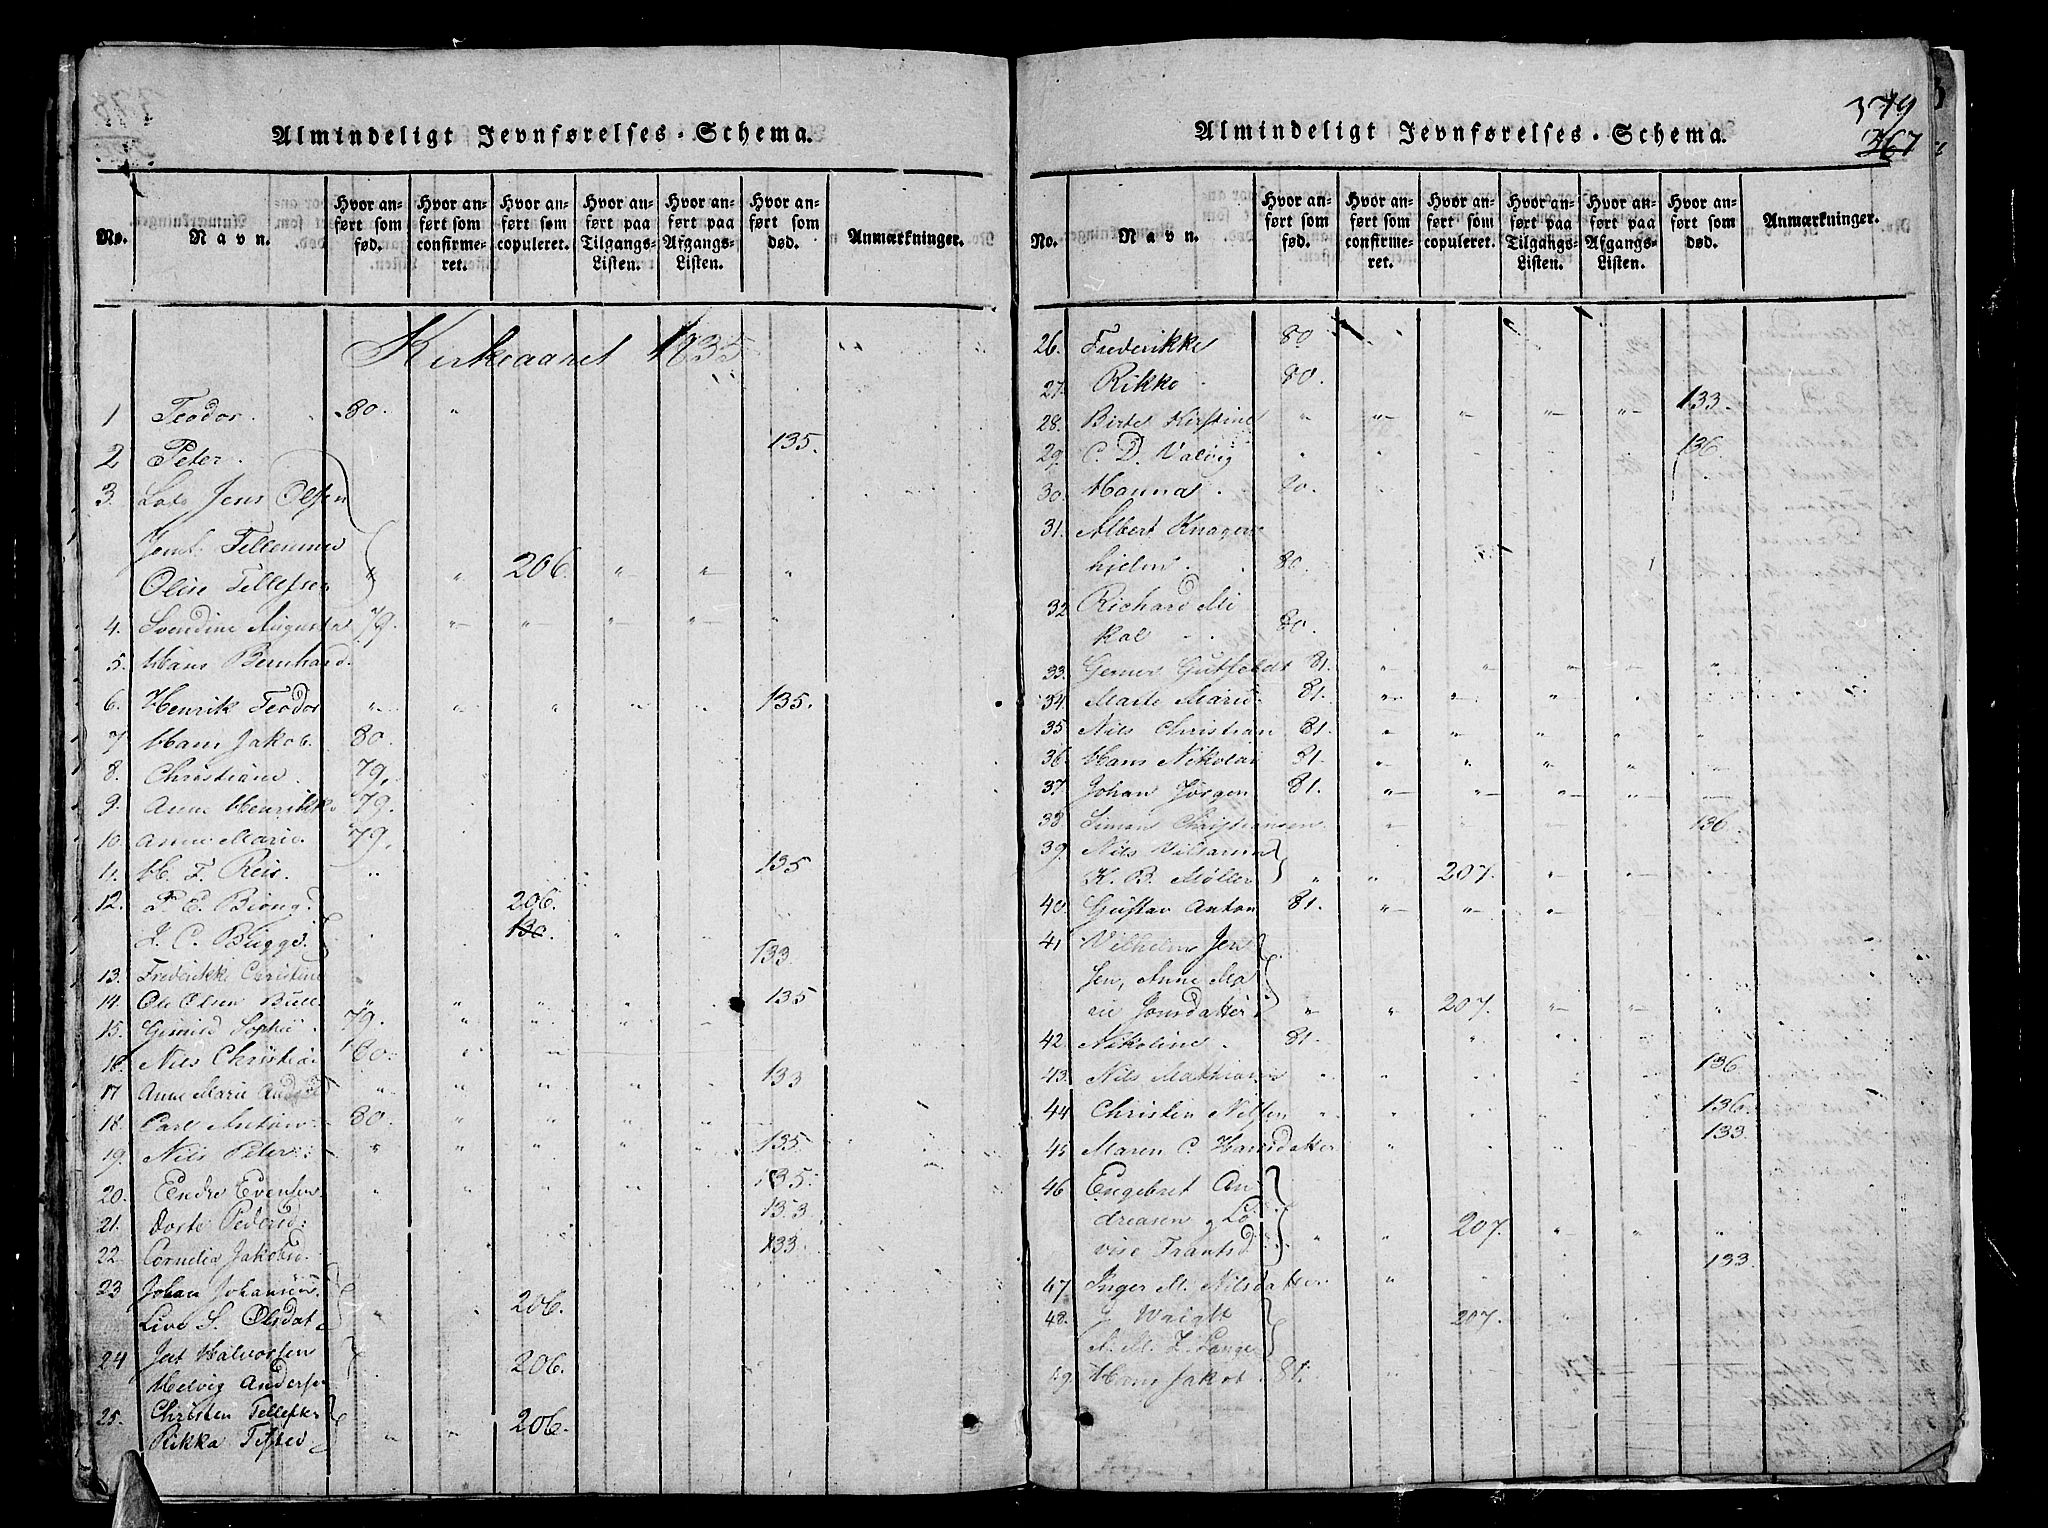 Almindeligt Jevnførelses-Schema.
No.
Navn.
Hvor anført som fød.
Hvor anført som confirmeret.
Hvor anført som copuleret.
Hvor anført paa Tilgangs-Listen.
Hvor anført paa Afgangs-Listen.
Hvor anført som død.
Anmærkninger.
Kirkeaaret 1835
1 Teodor. 80.
2 Peter. 135.
3. Jens Olsen
Olise Tellefsen 206.
4. Svendine Augusta 79.
5. Hans Bernhard.
6. Henrik Teodor 135.
7. Hans Jakob. 80.
8. Christiane. 79.
9. Anne Henrikke 79.
10. Anne Marie. 79.
11. H. F. Reis. 135
12. P. E. Biong. 206.
J. C. Bugge. 130.
13. Frederikke Christine 133.
14. Ole Olsen Bull 135
15. Sophie. 79.
16 Nils Christian 80.
17 Anne Marie 133
18. Carl Anton 80.
19. Nils Peter. 135.
20. Endre Evensen 135.
21. Dorte Pedersd: 133
22. Cornelia Jakobsd. 133.
23 Johan Johansen
Live S. Olsdat 206.
24 Halvorsen
Helvig Anders 206.
25. Christen Tellefsen
Rikka 206.
379
367
Almindeligt Jevnførelses-Schema.
No.
Navn.
Hvor anført som fød.
Hvor anført som confirmeret.
Hvor anført som copuleret.
Hvor anført paa Tilgangs-Listen.
Hvor anført paa Afgangs-Listen.
Hvor anført som død.
Anmærkninger.
26. Frederikke 80
27. Rikke 80.
28. Birte Kirstine 133.
29. C. D. Valvig 136.
30. Hanna. 80.
31. Albert Knagen
hjelm. 80.
32. Richard Mi
kal 80.
33. 81.
34. Marte Marie 81.
35 Nils Christian 81.
36. Hans Nikolai 81.
37 Johan Jørgen 81.
38 Simon Christiansen. 136.
39. Nils
K. B. Møller 207.
40. Gustav Anton 81.
41 Vilhelm Jen
sen, Anne Ma
rie Jonsdatter 207.
42. Nikoline. 81.
43. Nils Mathias 136.
44 Christen Nilsen 136.
45 Maren C. Hansdatter 133.
46 Engebret An
dreasen og Lo
vise Frantsd. 207.
47 Inger M. Nilsdatter 133.
48. J Wright 207.
A. M. Z. Lange
49 Hans Jakob. 81.